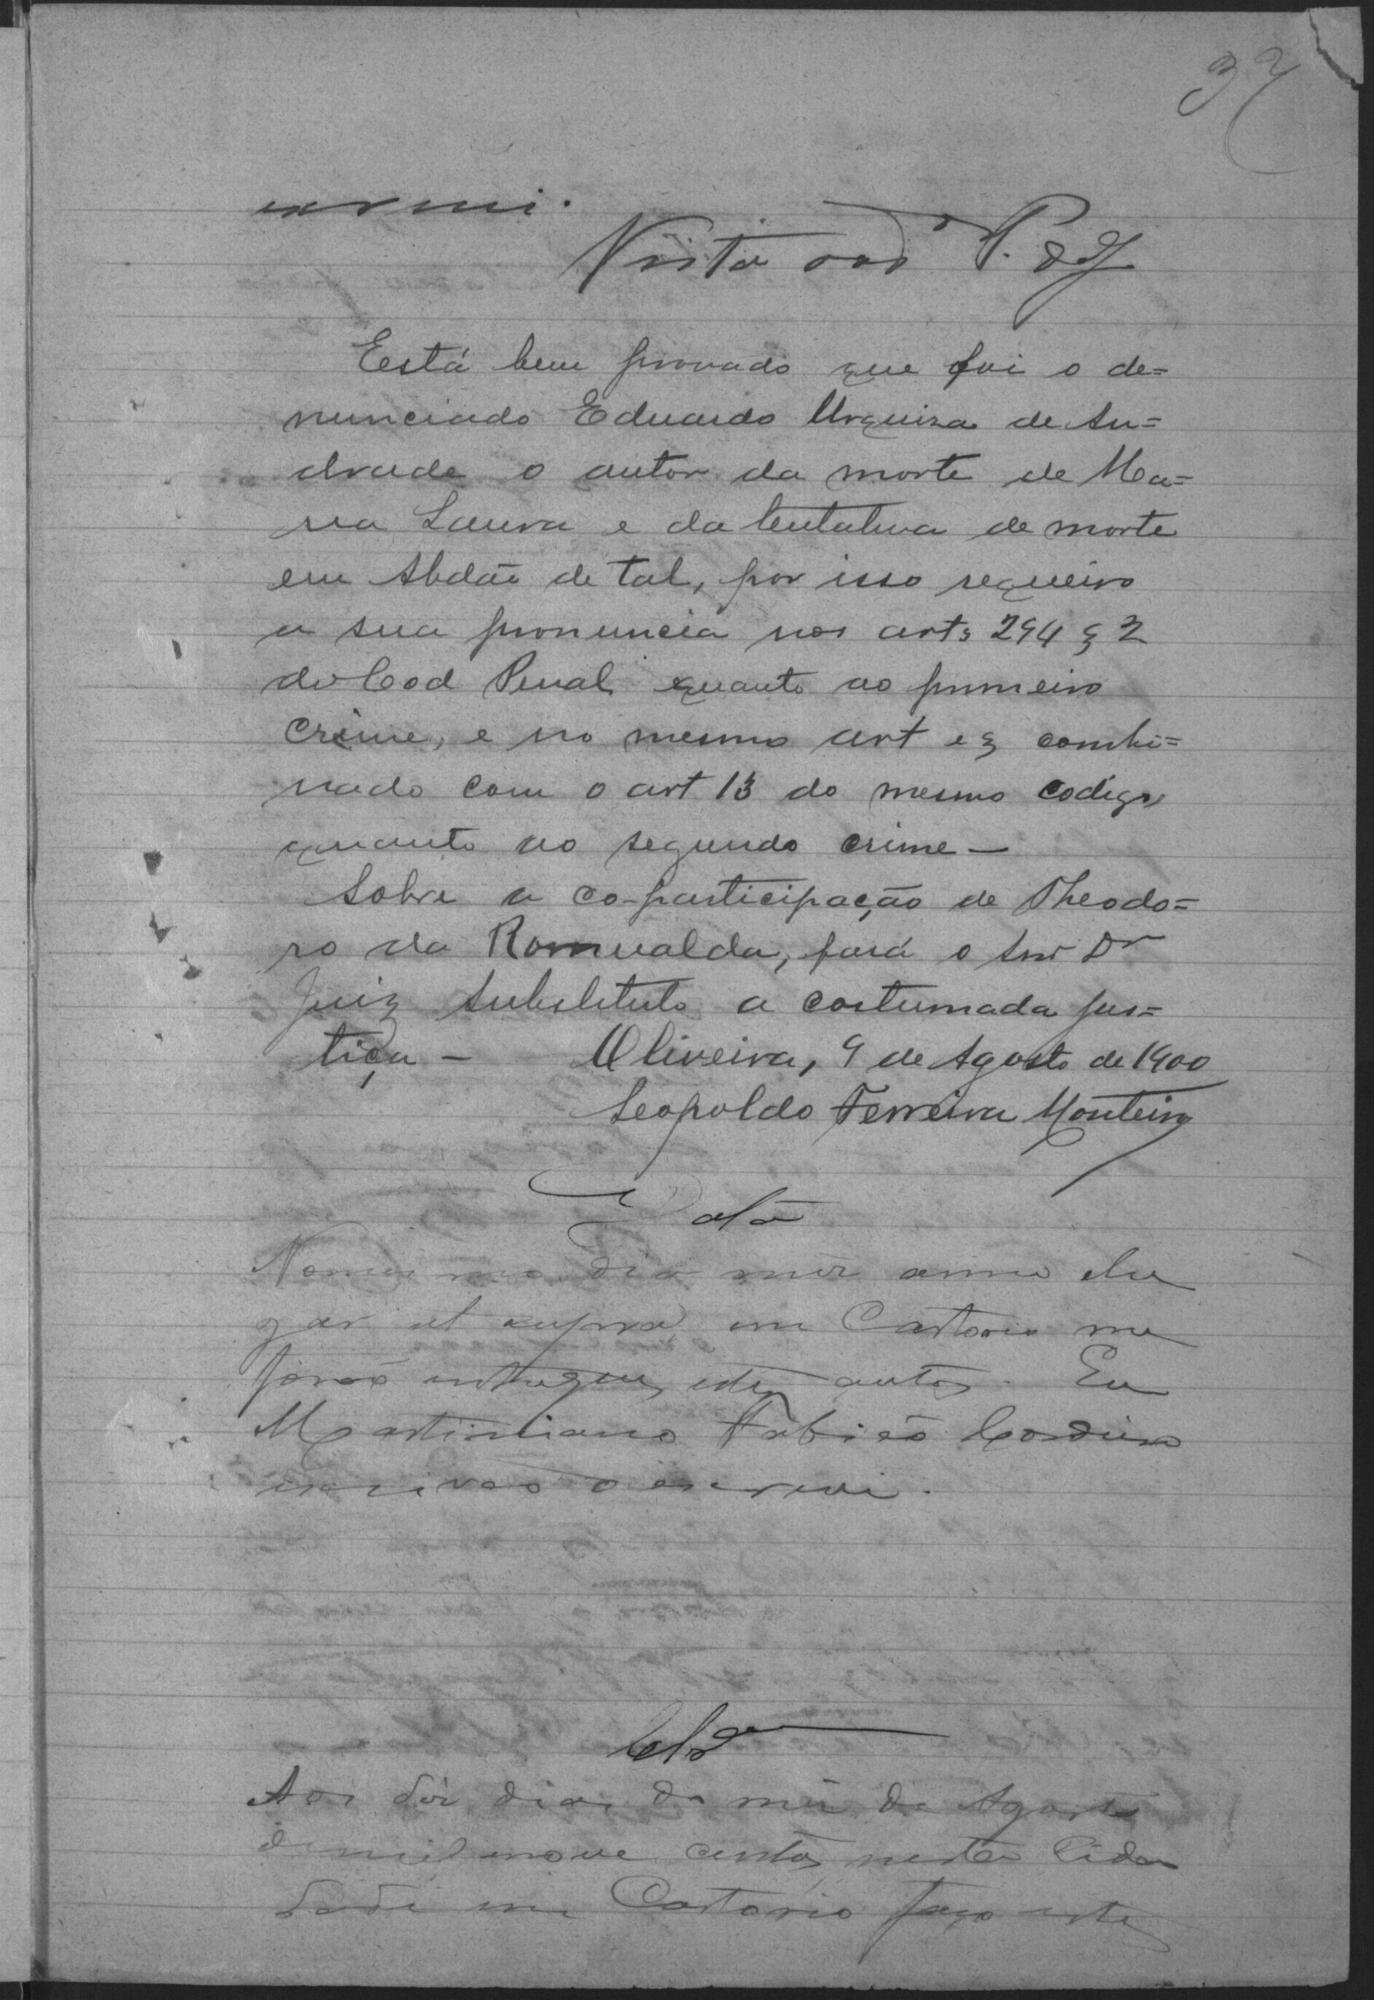 37
crevi.
Vista ao P. de J.
Está bem provado que foi o de=
nunciado Eduardo Urquiza de An=
drade o autor da morte de Ma=
ria Laura e da tentativa de morte
em Abdão de tal, por isso requeiro
a sua pronuncia nos arts 294 § 2
do Cod Penal quanto ao primeiro
crime, e no mesmo art e § combi=
nado com o art 13 do mesmo codigo
quanto ao segundo crime —
Sobre a co-participação de Theodo=
ro da Romualda, fará o Snr Dr
Juiz Substituto a costumada jus=
tiça — Oliveira, 9 de Agosto de 1900
Leopoldo Ferreira Monteiro
Data
No mesmo dia mez anno e lu
gar et supra em Cartorio me
forão entregues estes autos. Eu
Martiniano Fabião Cordeiro
escrivão o escrevi.
Clsão
Aos dez dias do mez de Agosto
de mil nove centos nesta Cida
dade em Cartorio faço estes